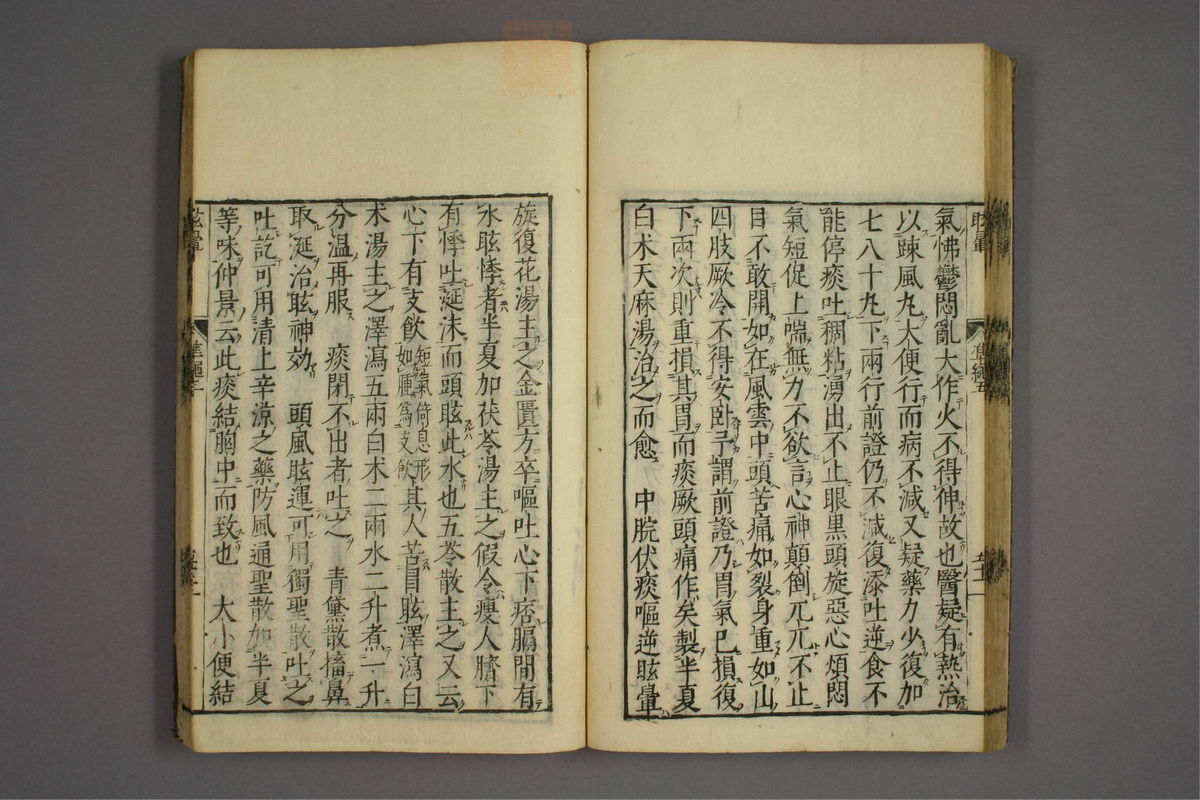 氣怫鬱悶亂大作火不得伸故也醫疑有熱治
以踈風丸大便行而病不減又疑藥力少復加
七八十丸下兩行前證仍不減復添吐逆食不
能停痰吐稠粘湧出不止眼黒頭旋惡心煩悶
氣短促上喘無力不欲言心神顛倒兀兀不止
目不敢開如在風雲中頭苦痛如裂身重如山
四肢厥冷不得安卧予謂前證乃胃氣已損復
下兩次則重損其胃而痰厥頭痛作矣製半夏
白朮天麻湯治之而愈　中脘伏痰嘔逆眩暈
旋復花湯主之金匱方卒嘔吐心下痞膈間有
水眩悸者半夏加茯苓湯主之假令瘦人臍下
有悸吐涎沫而頭眩此水也五苓散主之又云
心下有支飲短氣倚息形如腫爲支飲其人苦冒眩澤瀉白
朮湯主之澤瀉五兩白朮二兩水二升煮一升
分温再服　痰閉不出者吐之　青黛散搐鼻
取涎治眩神効　頭風眩運可用獨聖散吐之
吐訖可用清上辛凉之藥防風通聖散加半夏
等味仲景云此痰結胸中而致也　大小便結